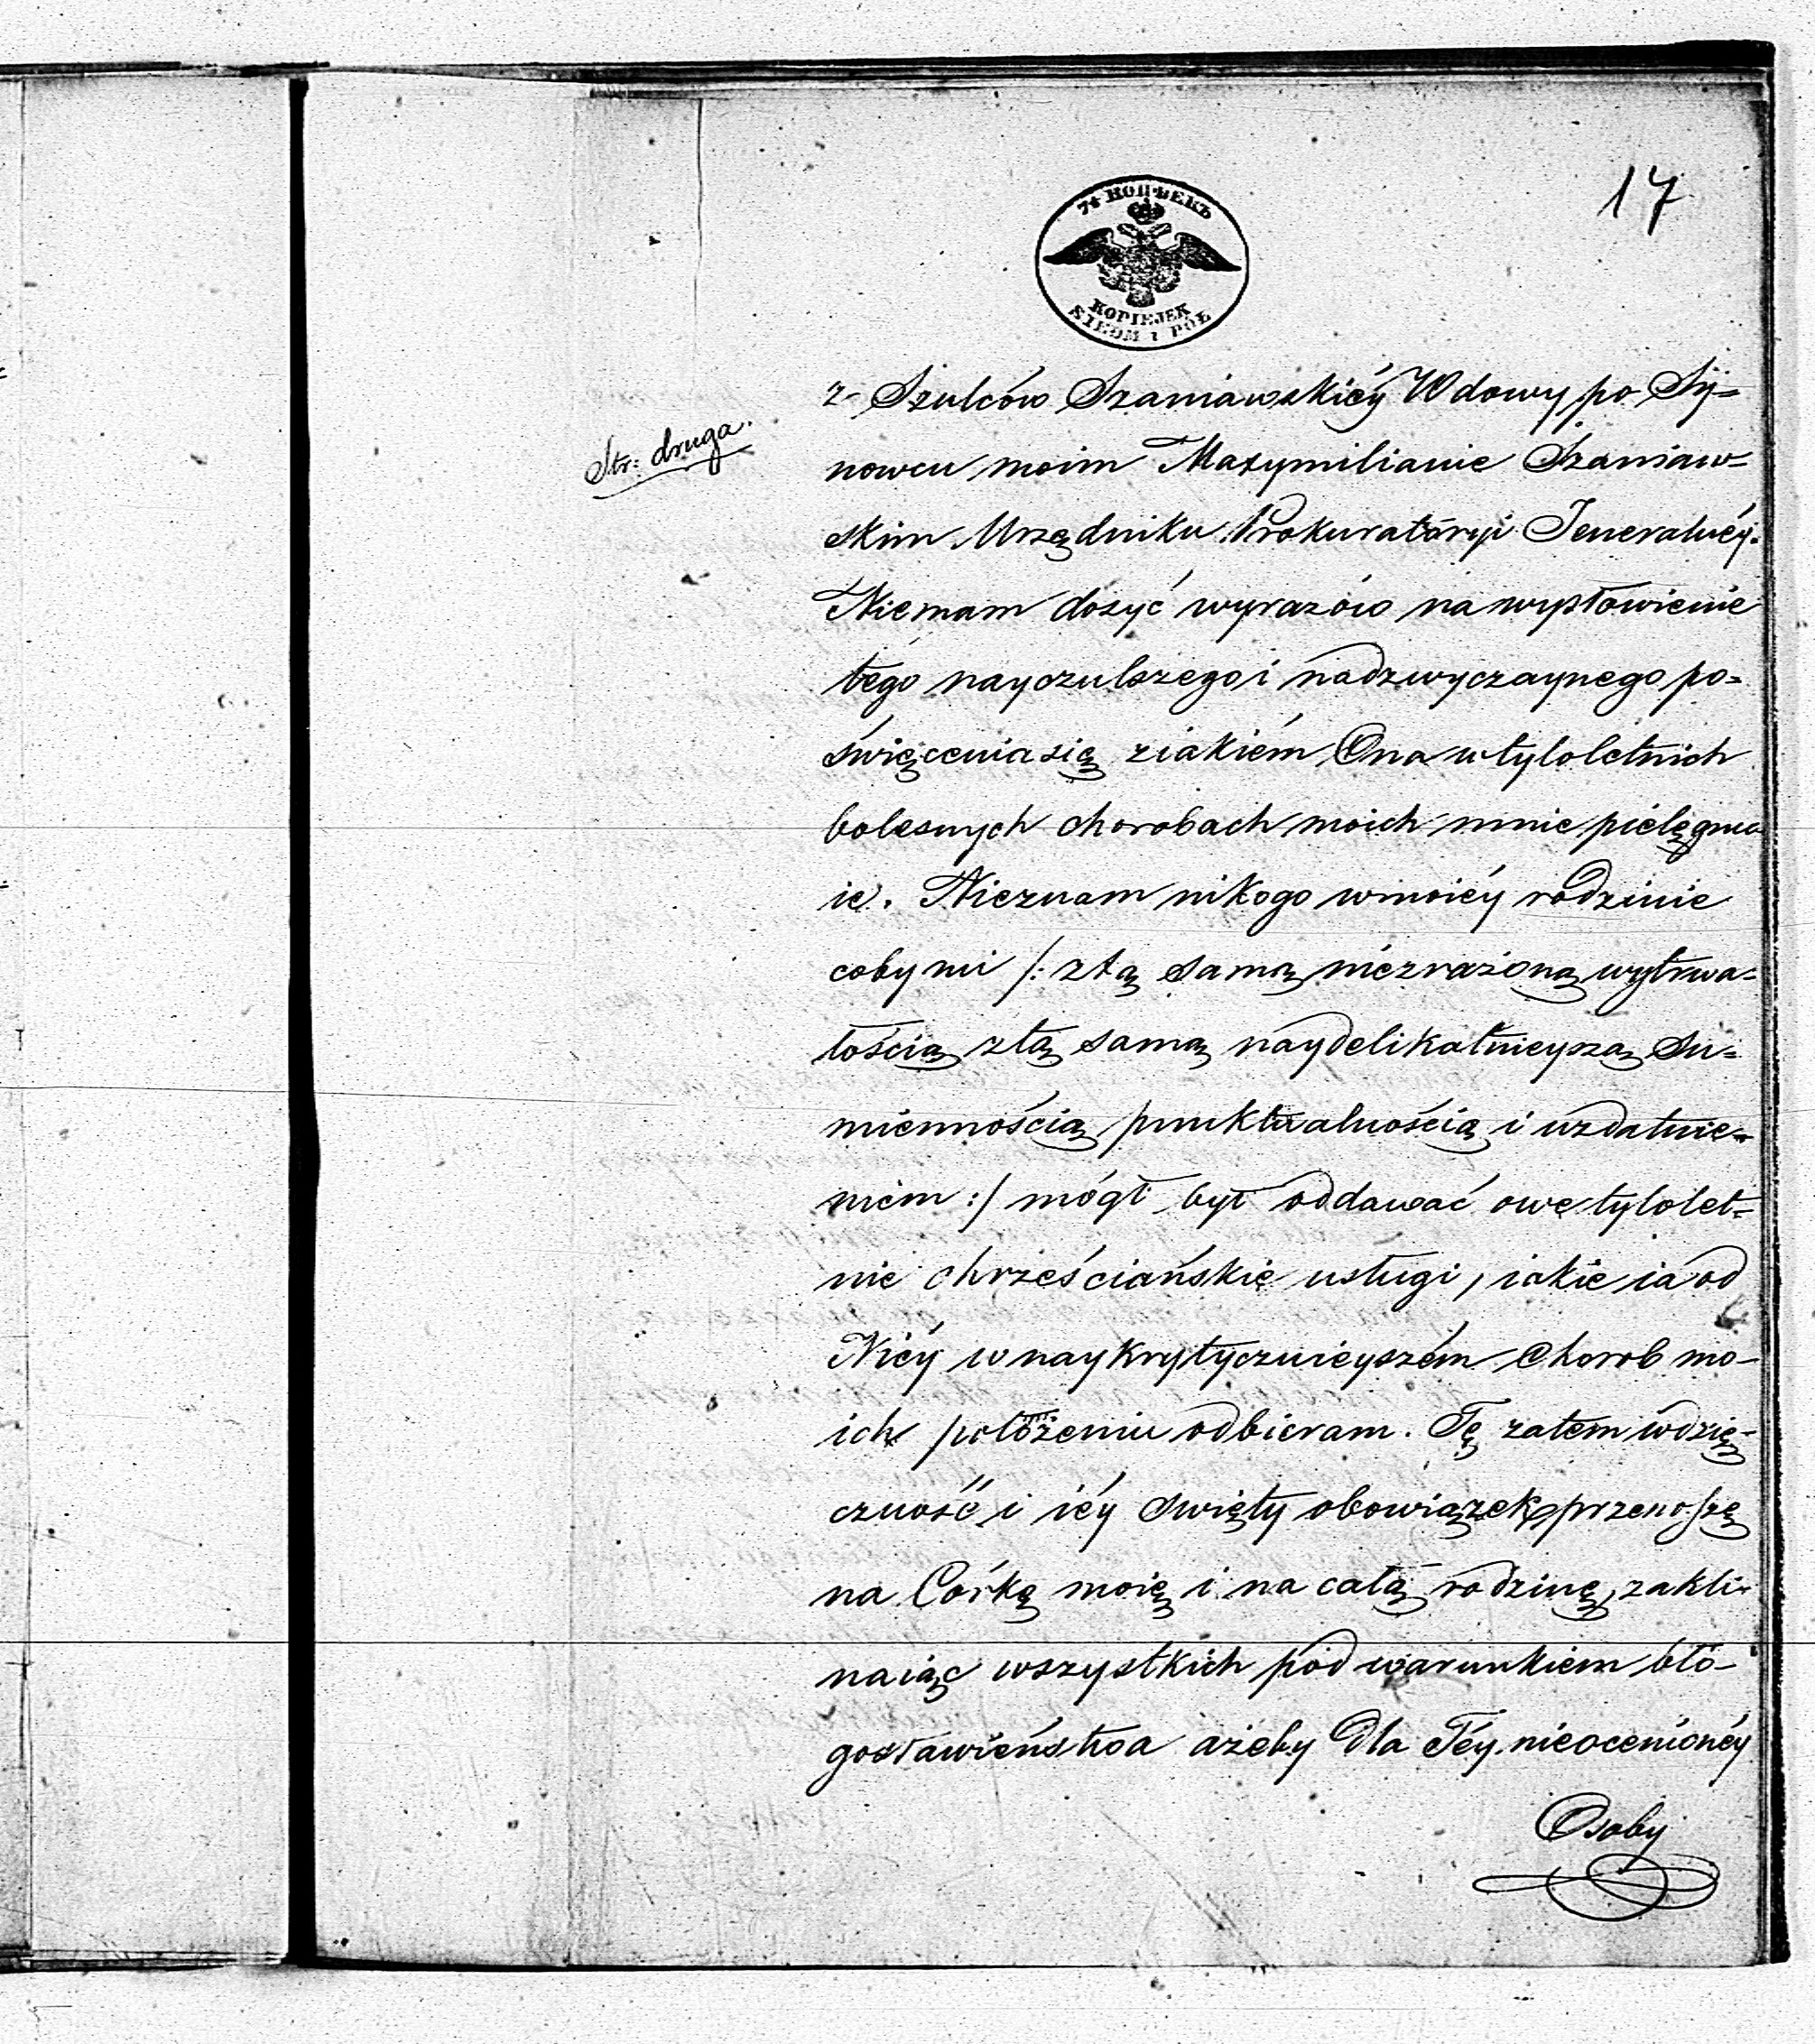 17
7½ КОПѢЕКЪ
KOPIEJEK
SIEDM i PÓŁ
Str: druga.
z Szulców Szaniawskiéy Wdowy po Sy=
nowcu moim Maxymilianie Szaniaw=
skim Urzędniku Prokuratoryi Jeneralnéy.
Niemam dosyć wyrazów na wysłowienie
tego nayczulszego i nadzwyczaynego po=
święcenia się ziakiém Ona w tyloletnich
bolesnych chorobach moich mnie pielęgnu
ie. Nieznam nikogo wmoiéy rodzinie
coby mi /: ztą samą niezrażoną wytrwa=
łością ztą samą naydelikatnieyszą su=
miennością punktualnością i uzdatnie=
niem :/ mógł był oddawać owe tylolet=
nie chrześciańskie usługi, iakie ia od
Niéy w naykrytycznieyszém chorob mo-
ich położeniu odbieram. Tę zatem wdzię-
czność i iéy święty obowiązek przenoszę
na Córkę moię i na całą rodzinę, zakli-
naiąc wszystkich pod warunkiem bło-
gosławieństwa ażeby dla Téy nieocenionéy
Osoby